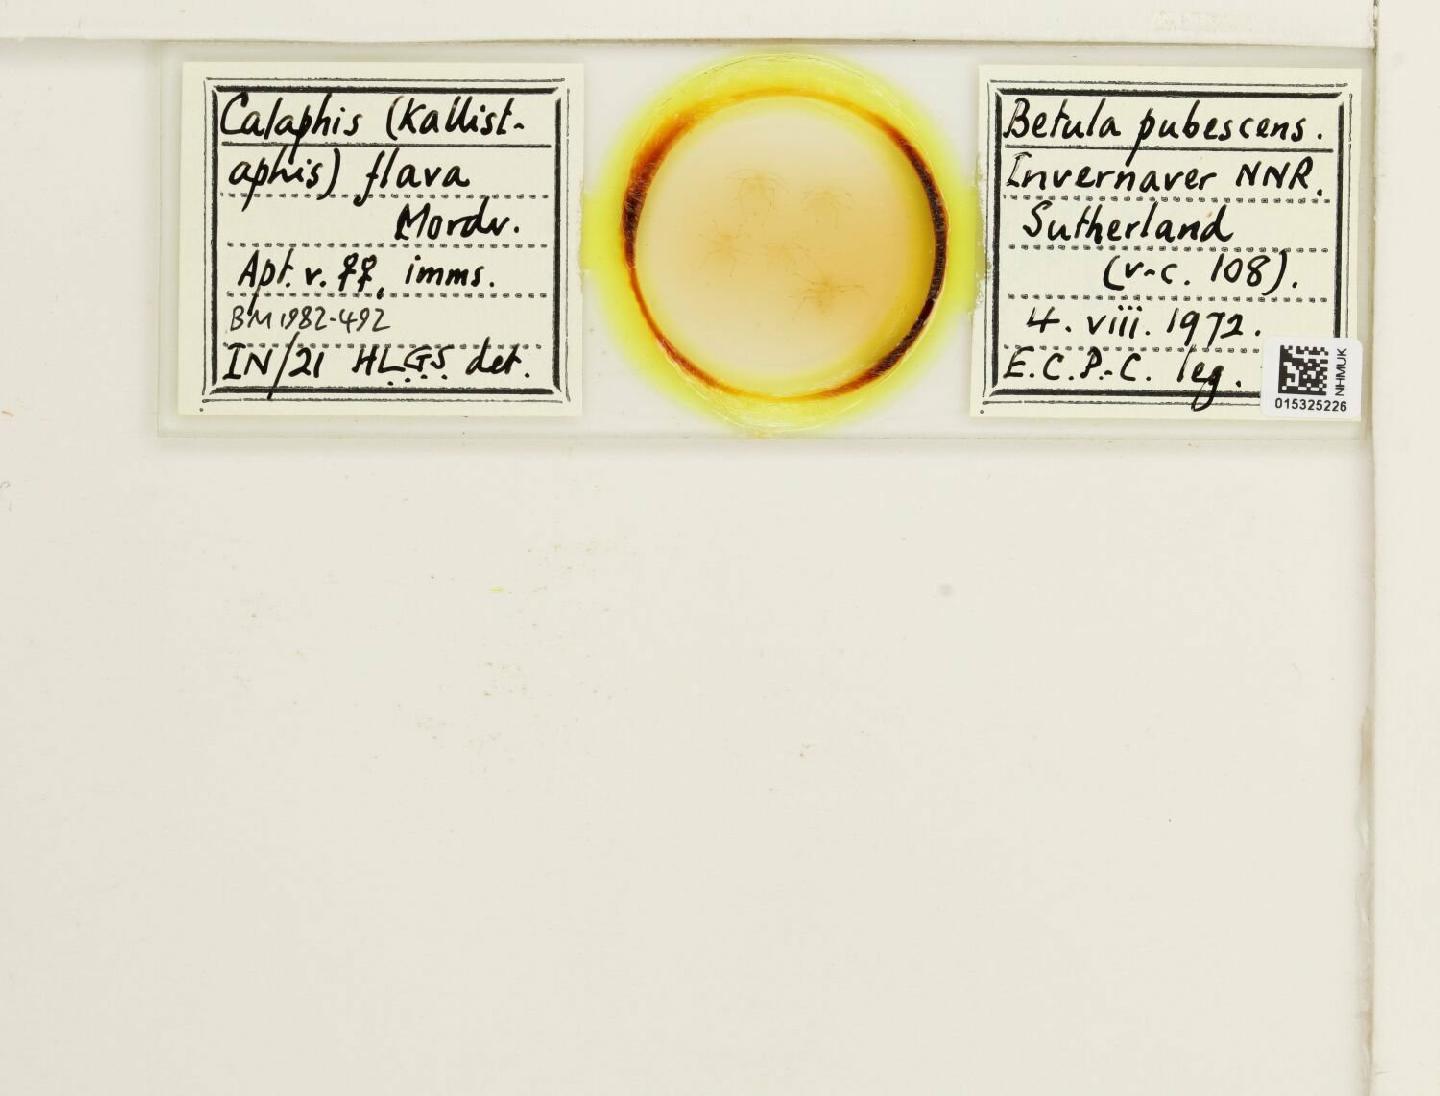 Calaphis (Kallist-
aphis) flava
Mordv.
Apt. v. ♀♀, imms.
BM 1982-492
IN/21 HLGS det.
Betula pubescens.
Invernaver NNR.
Sutherland
(v-c. 108).
4. viii. 1972.
E.C.P.-C. leg.
NHMUK
015325226